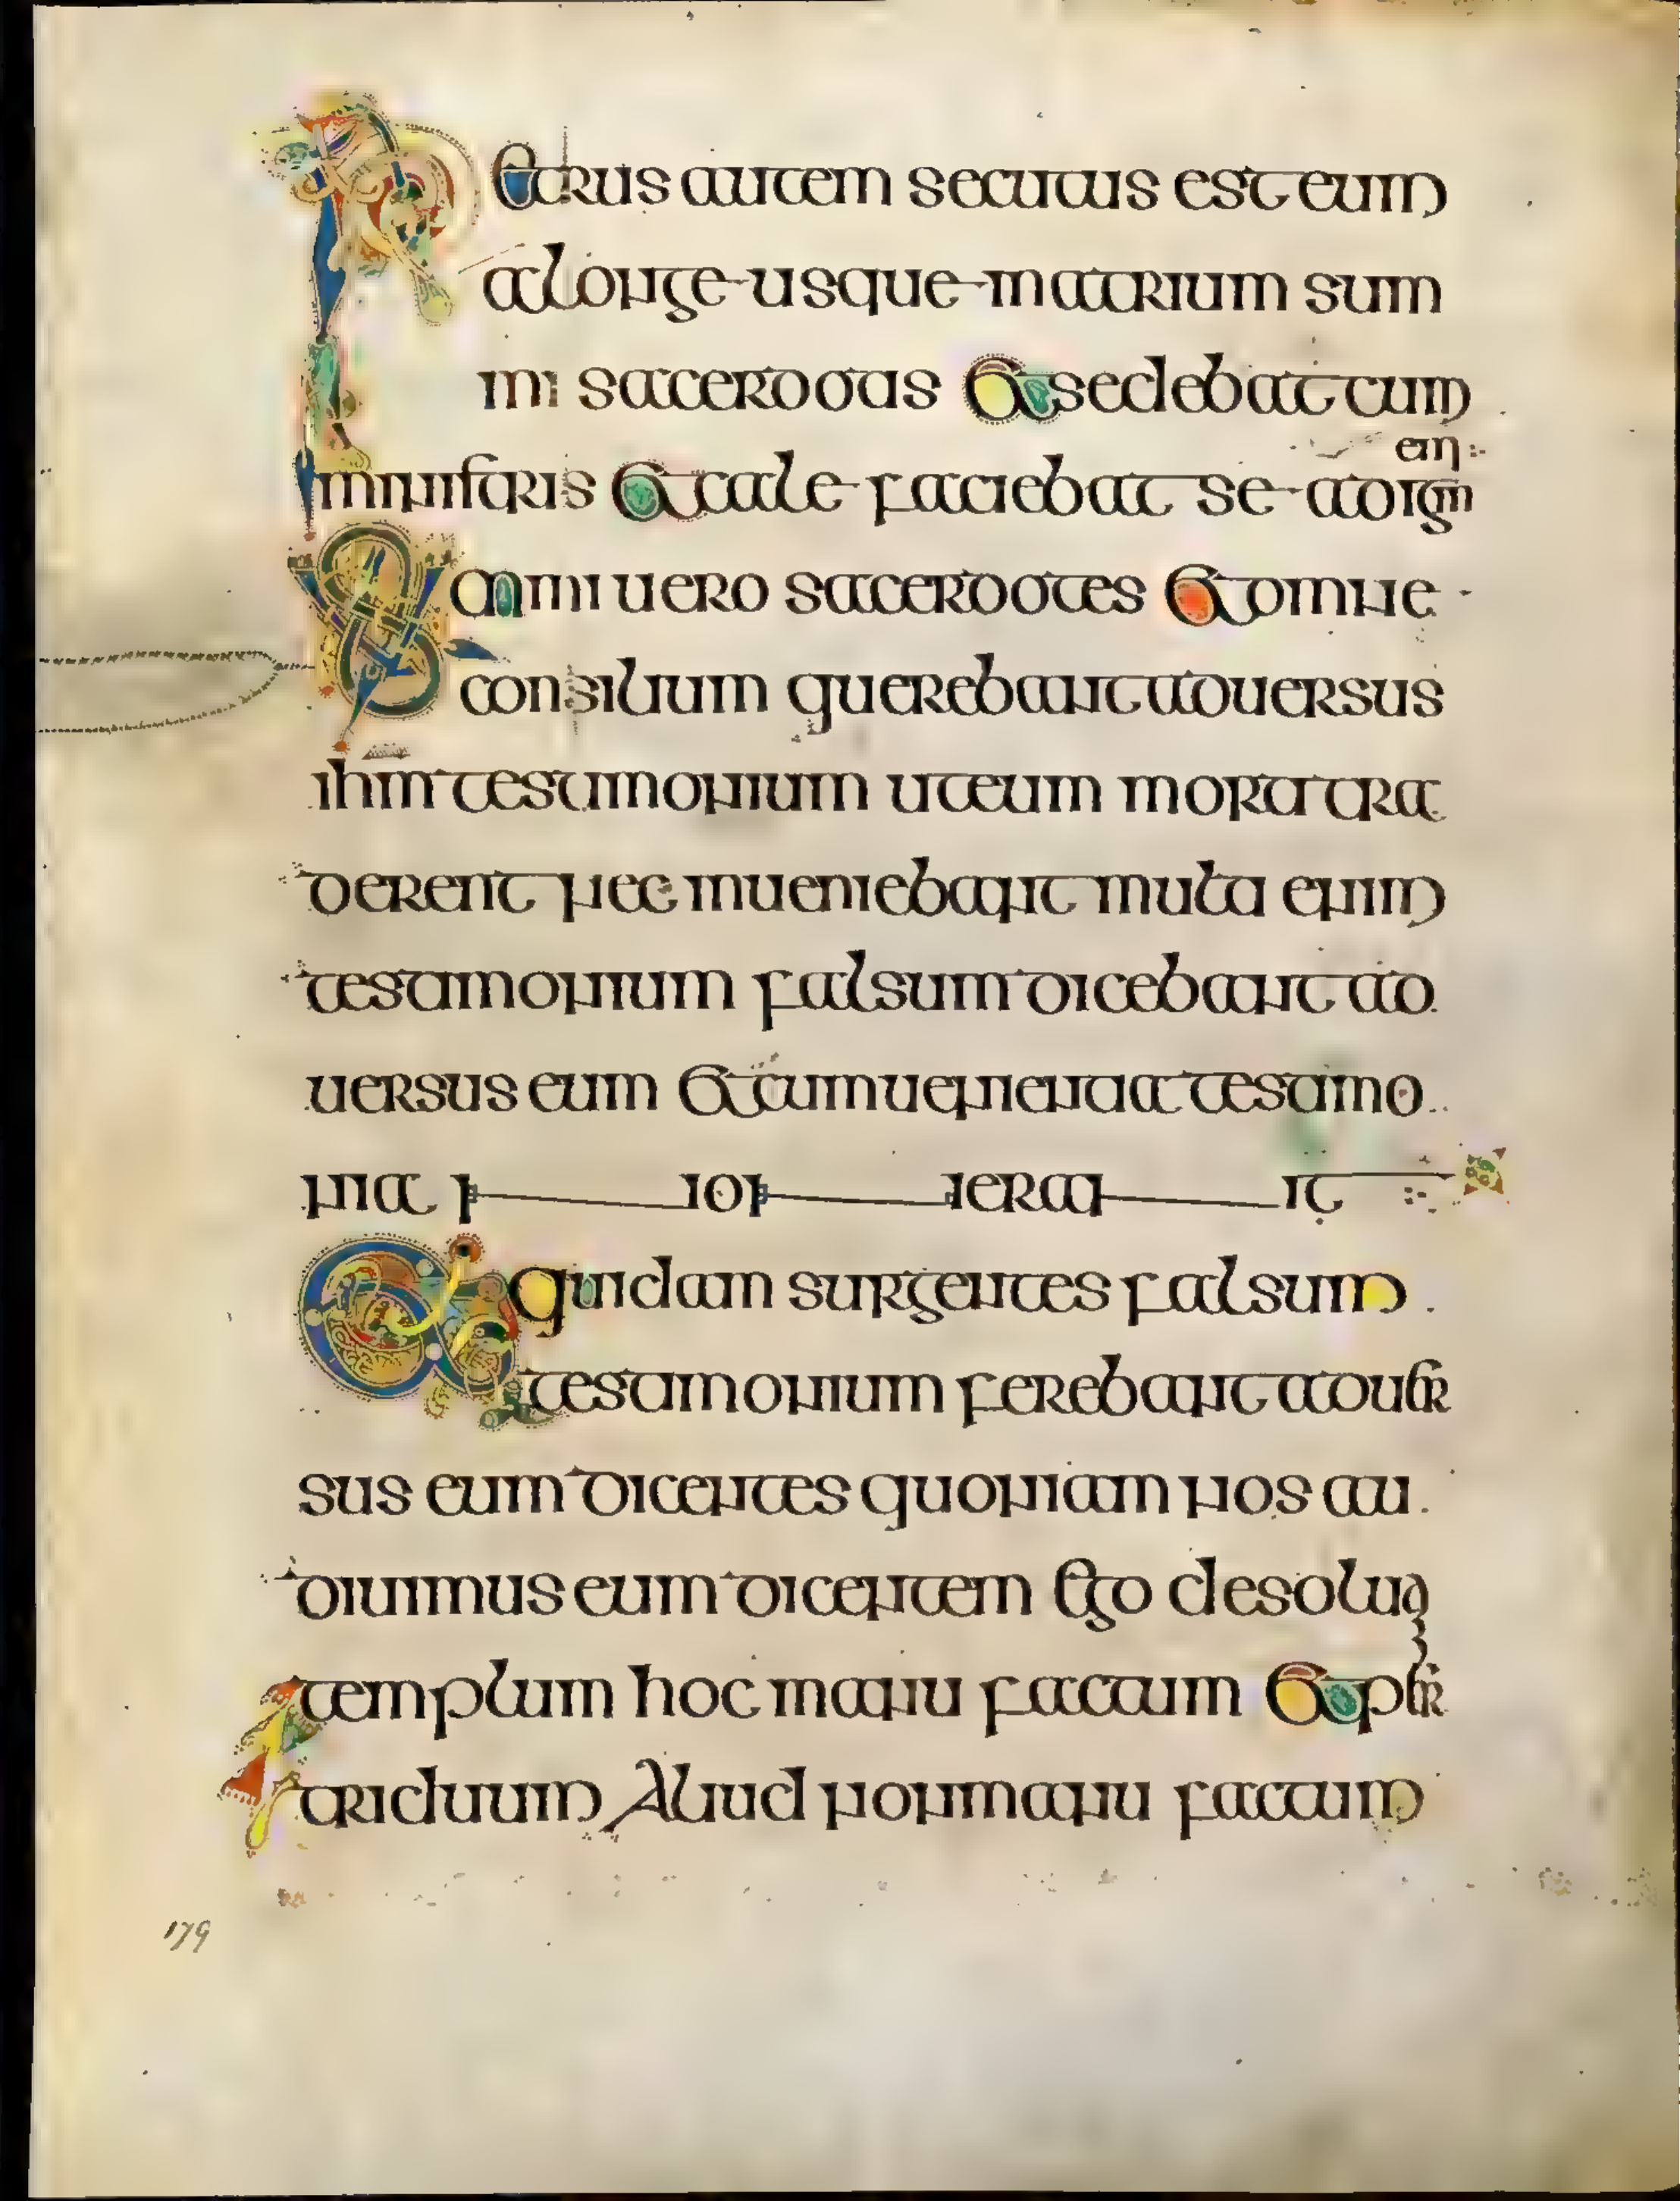 Petrus autem secutus est eum
a longe usque in atrium sum
mi sacerdotis Et sedebat cum
ministris Et cale faciebat se ad ign
em
Summi uero sacerdotes Et omne
consilium querebant aduersus
ihm testimonium ut eum morti tra
derent nec inueniebant multa enim
testimonium falsum dicebant ad
uersus eum Et cumuenientia testimo
nia n on eran t
Et quidam surgentes falsum
testimonium ferebant aduer
sus eum dicentes quoniam nos au
diuimus eum dicentem Ego desolua
templum hoc manu factum Et per
triduum Aliud non manu factum
179